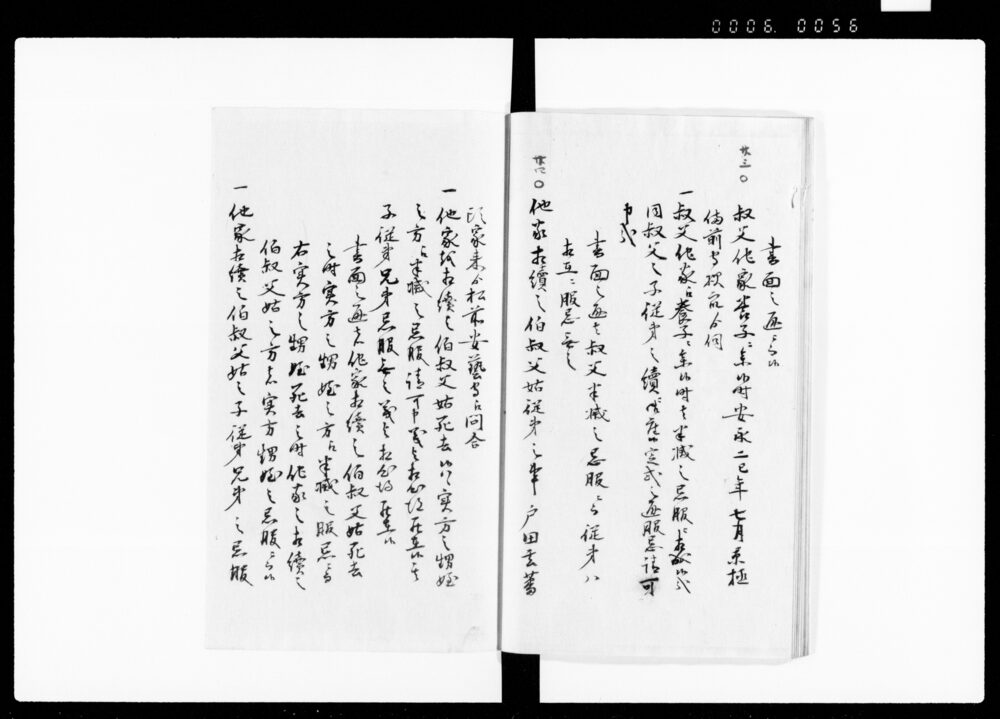 0006. 0056
書面之通ニ而候
廿三〇
叔父他家養子ニ参候時安永二巳年七月京極
備前守殿家来伺
一叔父他家江養子ニ参候時者半減之忌服ニ候
同叔父之子従弟之続ニ御座候定式之通服忌請可
申哉
書面之通者叔父半減之忌服ニ而従弟ハ
相互ニ服忌無之
廿四〇
他家相續之伯叔父姑従弟之事 戸田
頭家来ゟ松前安藝守江問合
一他家江相續之伯叔父姑死去候ハヽ実方之甥姪
之方江半減之忌服請可申義与相心得罷在候
子従弟兄弟忌服無之義与相心得罷在候
書面之通者他家相續之伯叔父姑死去
之時実方之甥姪之方江半減之服忌ニ而
右実方之甥姪死去之時他家之相續之
伯叔父姑之方茂実方甥姪之忌服ニ而候
一他家相續之伯叔父姑之子従弟兄弟之忌服